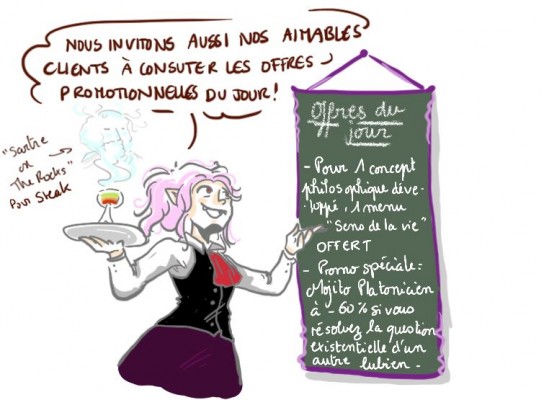 NOUS INVITONS AUSSI NOS AIMABLES
CLIENTS À CONSUTER LES OFFRES
PROMOTIONNELLES DU JOUR!
"Sartre
on
The Rocks"
Pour Steak
Offres du
jour
- Pour 1 concept
philosophique déve-
loppé, 1 menu
"Sens de la vie"
OFFERT
- Promo spéciale:
Mojito Platonicien
à -60% si vous
résolvez la question
existentielle d'un
autre lubien.